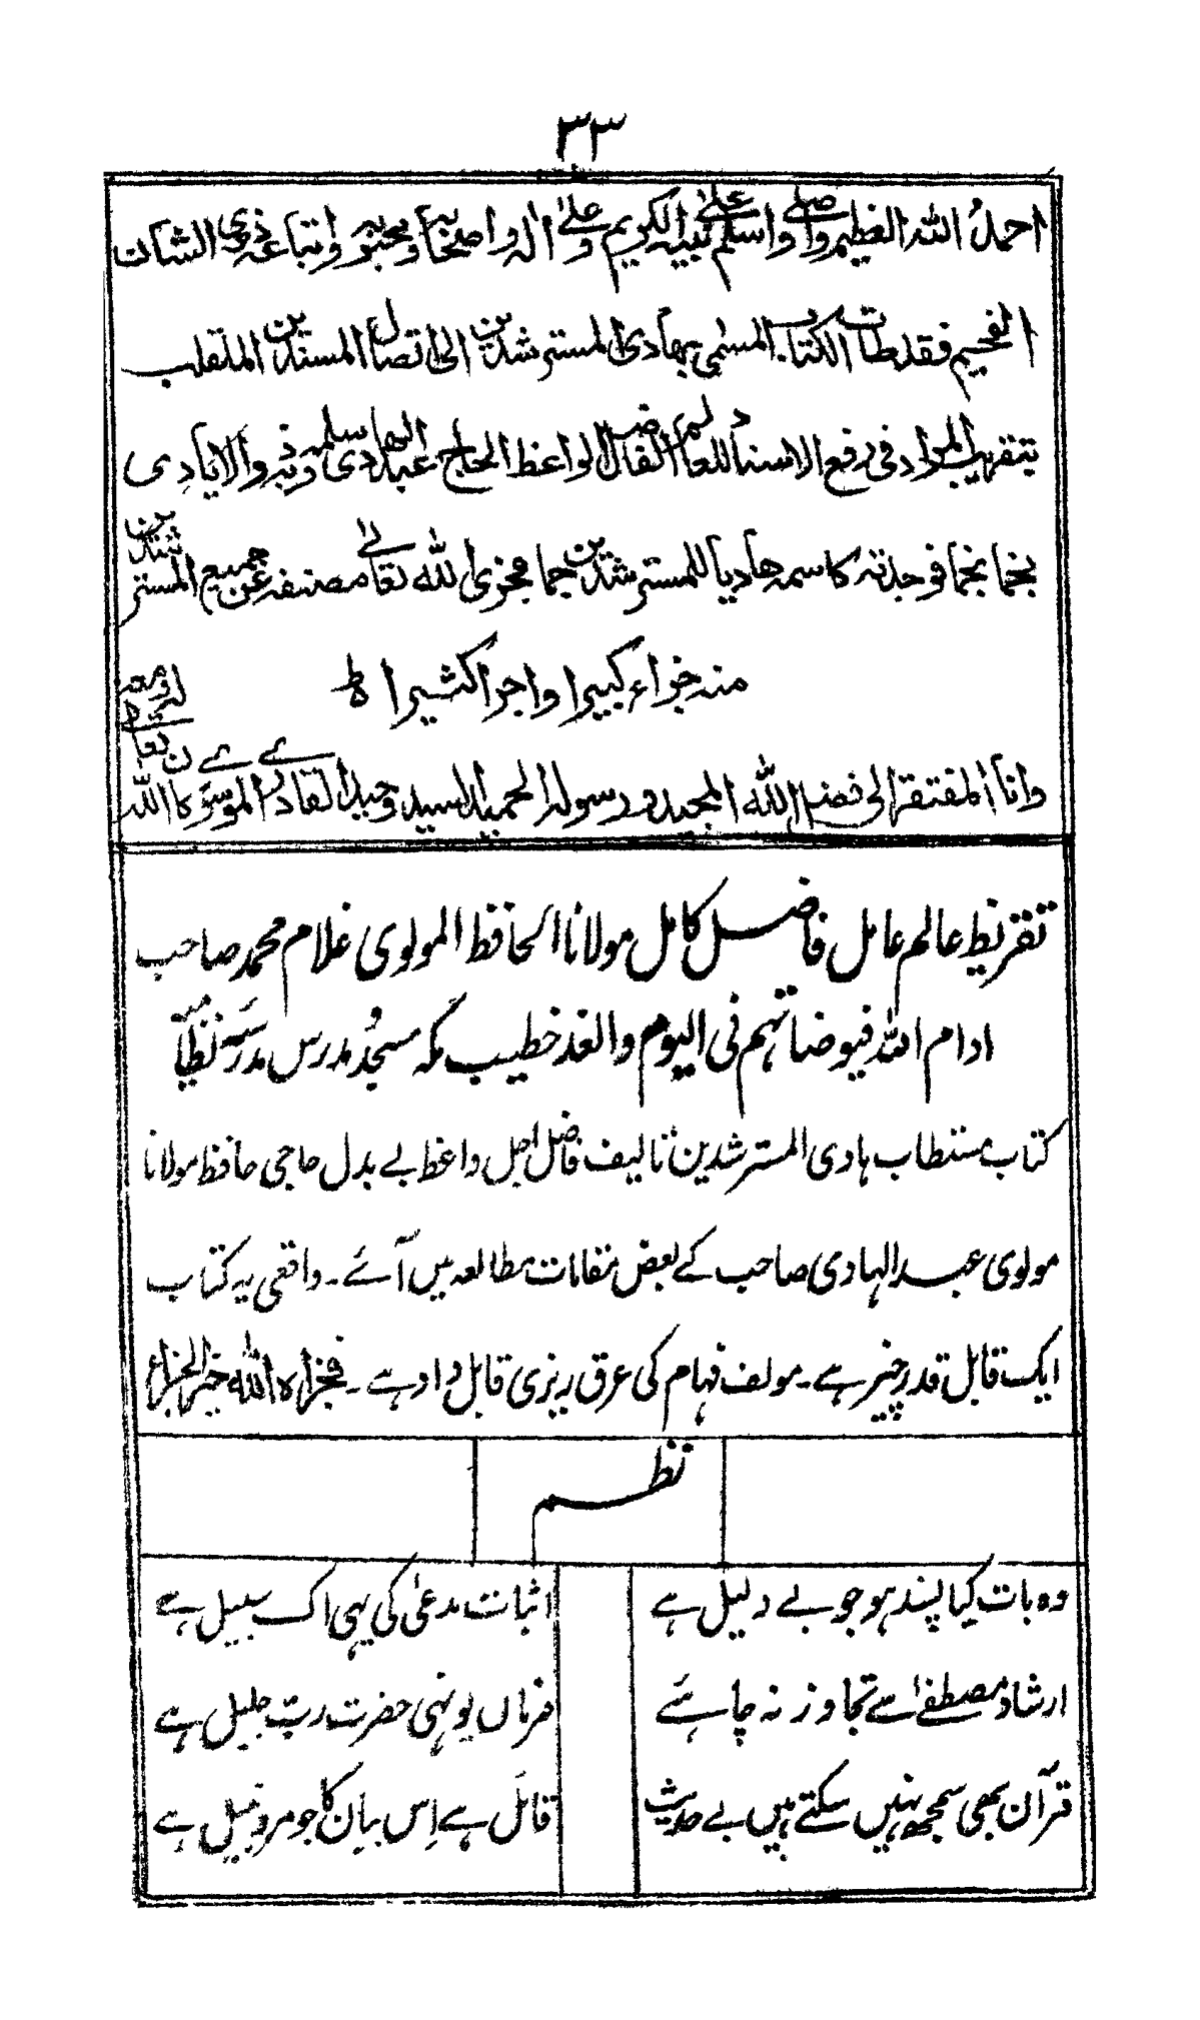 ٣٣
احمدُ اللّٰه العظيم واصلى واسلم على نبيه الكريم وعلىٰ اٰله واصحابه ومحبيه واتباعه ذوى الشان
الفخيم فقد طالعت الكتاب المسمى بهادى المسترشدين الى اتصال المسندين الملقب
بتقريب المراد فى رفع الاسناد للعالم الفاضل الواعظ الحاج عبد الهادى سلمه وذو الايادى
نجما نجما فوجدته كاسمه هاديا للمسترشدين جما فجزى اللّٰه تعالىٰ مصنفه عن جميع المسترشدين
منه جزاء كبيرا واجرا كثيرا ط
وانا المفتقر الى فضل اللّٰه المجيد ورسوله الحميد السيد وحيد القادرى الموسوى كان اللّٰه تعالىٰ له
تقریظ عالم عامل فاضل کامل مولانا الحافظ المولوی غلام محمد صاحب
ادام اللہ فیوضاتہم فی الیوم والغد خطیب مکہ مسجد و مدرس مدرسہ نظامیہ
کتاب مستطاب ہادی المسترشدین تالیف فاضل اجل واعظ بے بدل حاجی حافظ مولانا
مولوی عبدالہادی صاحب کے بعض مقامات مطالعہ میں آئے۔ واقعی یہ کتاب
ایک قابل قدر چیز ہے۔ مولف فہام کی عرق ریزی قابل داد ہے۔ فجزاہ اللّٰہ خیر الجزاء
نظم
وہ بات کیا پسند ہو جو بے دلیل ہے اثبات مدعیٰ کی یہی اک سبیل ہے
ارشاد مصطفےٰ سے تجاوز نہ چاہئے فرماں یونہی حضرت ربِّ جلیل ہے
قرآن بھی سمجھ نہیں سکتے ہیں بے حدیث قائل ہے اِس بیان کا جو مرد نبیل ہے